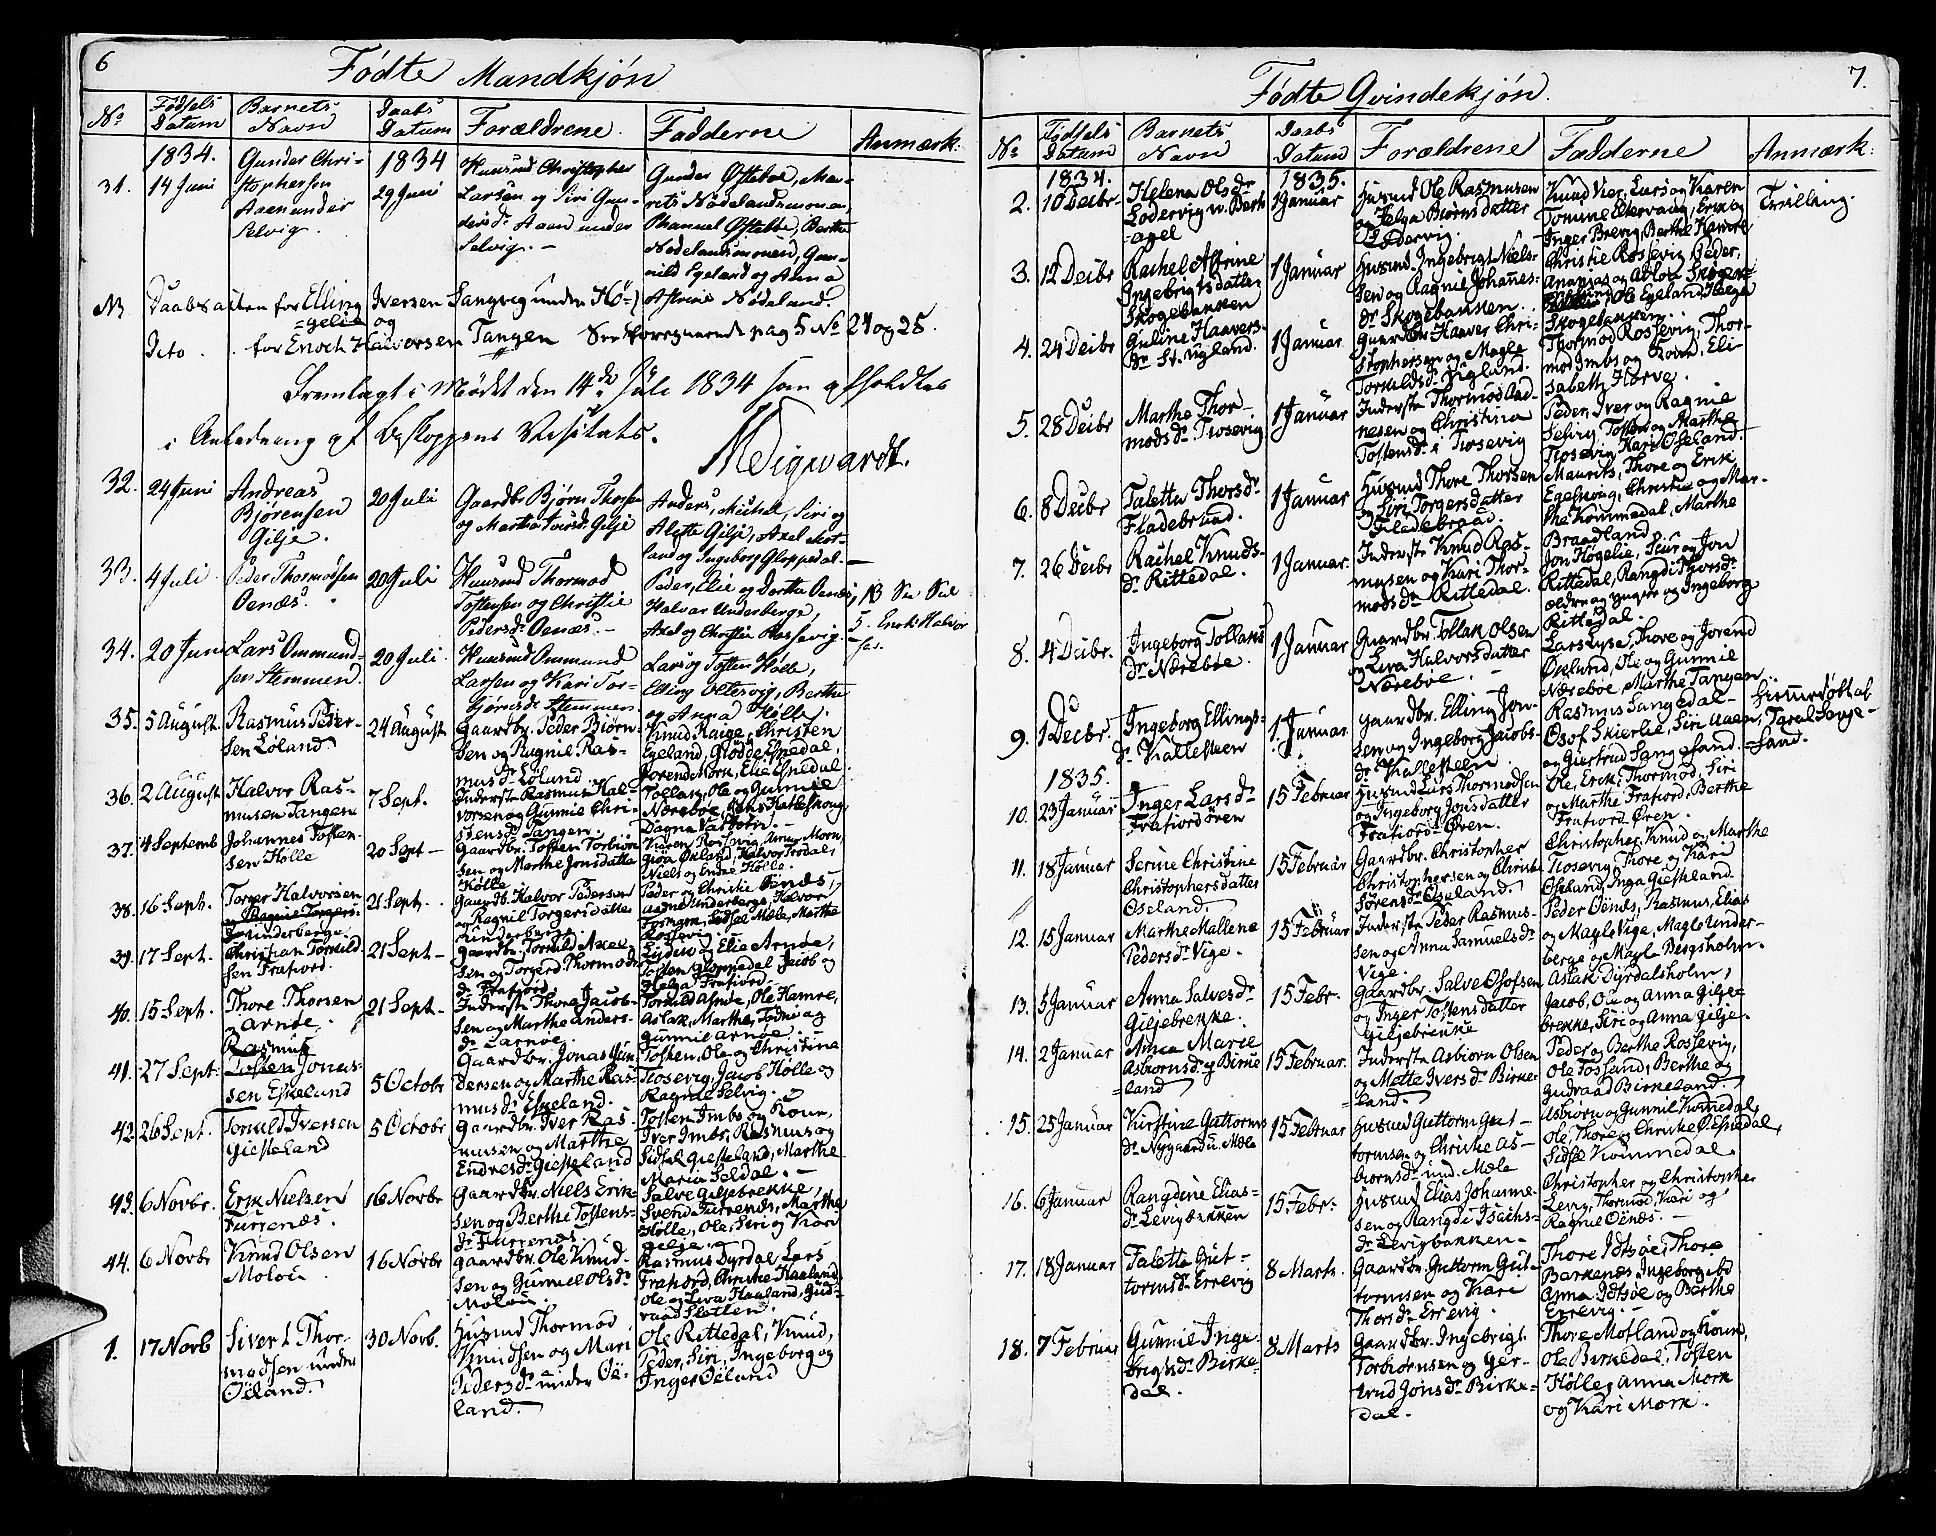 6
Fødte Mandkjøn
No
Fødsels Datum
Barnets Navn
Daabs Datum
Forældrene.
Fadderne
Anmærk.
1834.
1834
31.
14 Juni
Gunder Chri-
stophersen
Aaen under
Selvig.
29 Juni
Huusmd Christopher
Larsen og Siri Gun-
dersd. Aaen under
Selvig. -
Gunder Østebøe, Ma-
Nødeland.
NB
Daabsacten for Elling Iversen Sangvig under Hø-
gelie og
Dito. for Enoch Halvorsen Tangen See foregaaende pag 5 No 24 og 25.
Fremlagt i Mødet den 14de Juli 1834 som afholdtes
i Anledning af Biskoppens Visitats.
32.
24 Juni
Andreas
Bjørensen
Gilje.
20 Juli
Gaardbr Bjørn Thorsen
og Martha Iversd. Gilje
Anders, Michel, Siri og
Alette Gilje, Axel Mor-
land og Ingeborg Gloppedal.
33.
4 Juli
Peder Thormodsen
Oenæs.
20 Juli
Huusmd Thormod
Tostensen og Christie
Pedersd. Oenæs. -
Peder, Elie og Dorthe Oenæs,
Halvor Underberge,
Axel og Christie Rossevig.
34.
20 Juni
Lars Ommund-
sen Stemmen.
20 Juli
Huusmd Ommund
Larsen og Kari Tor-
bjørnsd. Stemmen
Lars og Tosten Hølle,
Elling Oltervig, Berthe
og Anna Hølle.
35.
5 August.
Rasmus Peder-
sen Løland.
24 August
Gaardbr. Peder Biørn-
sen og Ragnil Ras-
musd. Løland
Knud Raige, Christen
Egeland, Espedal,
Jorend Mørk, Elie Espedal.
36.
2 August
Halvor Ras-
musen Tangen
7 Sept.
Inderste Rasmus Hal-
vorsen og Gunnie Chri-
stensd. Tangen.
Tollak, Ole og Gunnie
Nærebøe,
Dagna Vasbotn. -
37.
4 Septemb
Johannes Tosten-
sen Hølle
20 Sept -
Gaardbr. Tosten Torbiøn
sen og Marthe Jonsdatter
Hølle
Niels og Endre Hølle.
38.
16 Sept.
Torger Halvorsen
Underberge.
21 Sept.
Gaardb. Halvor Pedersen
og Ragnil Torgersdatter
Underberge.
Peder og Christie Oenæs,
Rossevig. -
39.
17 Sept.
Christian Torkild
sen Frafiord.
21 Sept -
Gaardbr. Torkild Axel-
sen og Torgerd Thormod
d. Frafiord.
Ludvig og Elie Arnøe,
Tosten Gloppedal Jacob og
Helga Frafiord. -
40.
15 Sept.
Thore Thorsen
Arnøe,
21 Sept -
Inderste Thore Jacob-
sen og Marthe Anders-
d. Larnøe.
Torkild Arnøe, Ole Hamre,
Aslak, Marthe, Todne og
Gunnie Arnøe.
41.
27 Sept.
Rasmus
Tosten Jonas-
sen Eskeland
5 Octobr
Gaardbr. Jonas Gun
dersen og Marthe Ras-
musd. Eskeland.
Tosten, Ole og Christine
Tiosevig, Jacob Hølle og
Ragnie Selvig.
42.
26 Sept.
Torkild Iversen
Giesteland
5 Octobr
Gaardbr. Iver Ras-
musen og Marthe
Endresd. Giesteland
Tosten Imbs og Kone,
Iver Imbs, Rasmus og
Sidsel Giesteland, Marthe
Maria Seldal. -
43.
6 Novbr.
Erik Nielsen
Furrenæs.
16 Novbr
Gaardbr. Niels Erik-
sen og Berthe Tostens-
d. Furrenæs.
Salve Giljebrekke,
Svend Furrenæs, Marthe
Hølle, Ole, Siri og Kari
Gilje.
44.
6 Novbr
Knud Olsen
Moloii.
16 Novbr
Gaardbr. Ole Knud-
sen og Gunnil Olsd.
Moloii.
Rasmus Dyrdal, Lars
Frafiord, Christie Haaland,
Ole og Siva Haaland, Gud-
raad Sletten.
1.
17 Novb
Siver L. Thor-
modsen under
Oëland.
30 Novb.
Husmd Thormod
Knudsen og Mari
Pedersd. under Oë-
land.
Ole Rittedal, Knud,
Peder, Siri, Ingeborg og
Inger Oëland
7.
Fødte Qvindekjøn.
No
Fødsels Datum
Barnets Navn
Daabs Datum
Forældrene
Fadderne
Anmærk.
1834.
1835.
2.
10 Decbr.
Helena Olsdr
Lodervig
1 Januar
Husmd Ole Rasmusen
og Helga Biørnsdatter
Lodervig.
Knud Vier, Lars og Karen
Inger Brevig, Berthe Hamre
Tvilling.
3.
12 Decbr
Rachel Astrine
Ingebrigtsdatter
Skogebakken
1 Januar
Husmd. Ingebrigt Niels-
sen og Ragnie Johanes-
dr. Skogebakken.
Christie Rossevig, Peder,
Ole Egeland, Helga
Skogebakken.
4.
24 Decbr
Guline Haavers-
dr. St. Vigland.
1 Januar
Gaardbr Haaver Chri-
stophersen og Magle
Torkildsd. Vigland.
Thormod Rossevig, Thor-
mod Imbs og Kone, Eli-
sabeth Hørve.
5.
28 Decbr
Marthe Thor-
modsdr. Tiosevig
1 Januar
Inderste Thormod Aad-
nesen og Christina
Tostensdr. i Tiosevig
Peder, Iver og Ragnie
Selvig Tosten og Marthe
Tiosevig, Kari Oseland.
6.
8 Decbr
Taletta Thorsdr
Fladebraad.
1 Januar
Husmd Thore Thorsen
og Siri Torgersdatter
Fladebraad.
Maurits, Thore og Erik
Egeskoug, Christie og Mar-
the Kommedal, Marthe
Braadland
7.
26 Decbr
Rachel Knuds-
dr. Rittedal.
1 Januar.
Inderste Knud Ras-
musen og Kari Thor-
modsdr. Rittedal.
Jon Høgelie, Siur og Jon
Rittedal, Rangdi Thorsdr.
ældre og yngre og Ingeborg
Rittedal.
8.
4 Decbr.
Ingeborg Tollaks
dr. Nærebøe.
1 Januar
Gaardbr. Tollak Olsen
og Liva Halvorsdatter
Nærebøe. -
Lars Lyse, Thore og Jorend
Øxlund, Ole og Gunnil
Nærebøe, Marthe Tangen
9.
1 Decbr.
Ingeborg Ellings-
dr. Kallesteen
1. Januar
Gaardbr. Elling Jon-
sen og Ingeborg Jacobs-
dr. Kallesteen.
Rasmus Sangedal -
Osof Skierlie, Siri Aaen,
og Giertrud Sangesand.
Hiemmedøbt af
Taral Sange-
sand.
1835.
10.
23 Januar
Inger Larsdr.
Frafiordøren
15 Februar
Husmd Lars Thormodsen
og Ingeborg Jonsdatter
Frafiord Øren.
Ole, Erik, Thormod, Siri
og Marthe Frafiord, Berthe
Frafiord Øren.
11.
18 Januar
Serine Christine
Christophersdatter
Oseland.
15 Februar
Gaardbr. Christopher
Christophersen og Christi
Sørensdr. Oseland.
Christopher, Knud og Marthe
Tiosevig, Thore og Kari
Oseland, Inga Giesteland.
12.
15 Januar
Marthe Mallene
Pedersdr. Vige.
15 Februar
Inderste Peder Rasmus-
sen og Anna Samuelsdr
Vige.
Peder Oënæs, Rasmus, Elias
og Magle Vige, Magle Under-
berge og Magla Bergsholm.
13.
5 Januar
Anna Salvesdr.
Giljebrekke.
15 Febr.
Gaardbr. Salve Osofsen
og Inger Tostensdatter
Giljebrekke
Aslak Dyrdalsholm,
Jacob, Ole og Anna Gilje
brekke, Siri og Anna Gilje.
14.
2 Januar
Anna Marie
Asbiornsdr. Birke
land
15 Februar.
Inderste Asbiorn Olsen
og Mette Iversdr. Birke-
land.
Peder og Berthe Rossevig,
Ole Tosland, Berthe og
Gudraad Birkeland.
15.
25 Januar
Kirstine Guttorms
dr. Nygaard u. Mæle
15 Februar
Husmd Guttorm Gut-
tormsen og Christie As-
biornsdr. und. Mæle
Asbiorn og Gunnil Komedal,
Ole, Thore og Christie Espedal,
Sidsel Kommedal.
16.
6 Januar
Rangdine Elias-
dr. Levigbakken
15 Febr.
Husmd Elias Johanne-
sen og Rangdi Isachs-
dr. Levigbakken -
Christopher og Christopher
Levig, Thormod, Kari og
Ragnil Oënæs. -
17.
18 Januar
Taletta Gut-
tormsdr. Errevig
8 Marts.
Gaardbr. Guttorm Gut-
tormsen og Kari
Thorsdr. Errevig.
Thore Idtsøe, Thore
Barkenæs, Ingeborg ibd
Anna Idtsøe og Berthe
Errevig. -
18.
7 Februar
Gunnil Inge-
brigtsdr. Birke-
dal.
8 Marts
Gaardbr. Ingebrigt
Torbiornsen og Ger-
trud Jonsdr. Birke-
dal.
Thore Motland og Kone,
Ole Birkedal, Tosten
Hølle, Anna Mørk
og Kari Mørk.